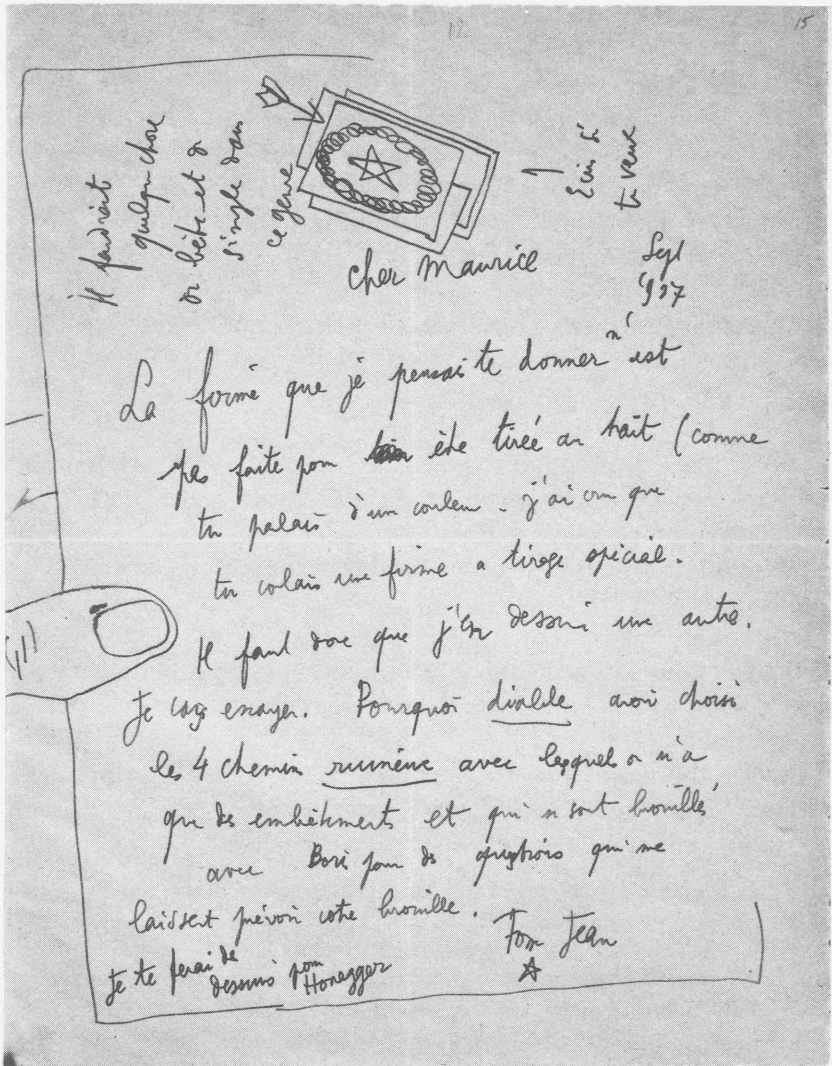 12
15
Il faudrait
quelque chose
de bête et de
simple dans
ce genre
Ecris si
tu veux
cher Maurice
Sept
1927
La forme que je pensais te donner n'est
pas faite pour être tirée au trait (comme
tu parlais d'un couleur. j'ai cru que
tu voulais une forme a tirage spécial.
Il faut donc que j'en dessine une autre.
Je vais essayer. Pourquoi diable avoir choisi
les 4 chemins avec lesquels on n'a
que des embêtements et qui se sont brouillés
avec Boris pour des questions qui me
laissent prévoir votre brouille.
Ton Jean
Je te ferai de
dessins pour
Honegger